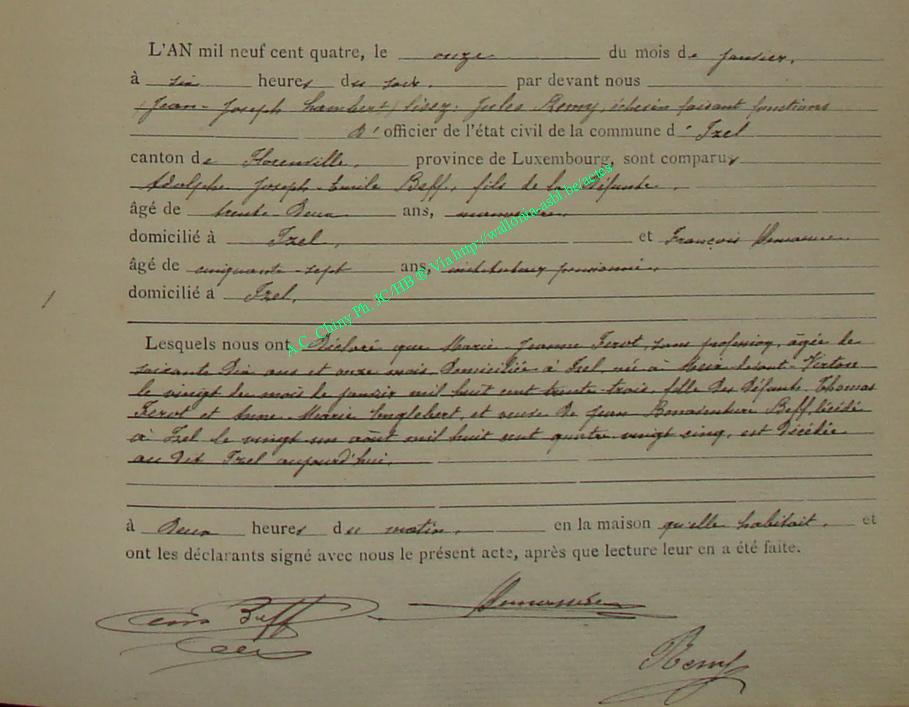 L'AN mil neuf cent quatre, le onze du mois de janvier,
à six heures du soir, par devant nous
Jean-Joseph Lambert, lisez: Jules Remy, échevin faisant fonctions
d'officier de l'état civil de la commune d'Izel
canton de Florenville, province de Luxembourg, sont comparus
Adolphe Joseph Emile Beff, fils de la défunte,
âgé de trente-deux ans,
domicilié à Izel, et François
âgé de cinquante-sept ans, pensionné,
domicilié à Izel,
Lesquels nous ont déclaré que Marie-Jeanne Ferot, sans profession, âgée de
soixante dix ans et onze mois domiciliée à Izel, née à Meix devant Virton
le vingt du mois de janvier mil huit cent trente-trois, fille des défunts Thomas
Ferot et Anne-Marie Englebert, et veuve de Jean Bonaventure Beff, décédé
à Izel le vingt un août mil huit cent quatre vingt cinq, est décédée
au dit Izel aujourd'hui,
à deux heures du matin, en la maison qu'elle habitait, et
ont les déclarants signé avec nous le présent acte, après que lecture leur en a été faite.
Beff
Remy
A.C. Chiny Ph. JC/HB ® Via http://wallonia-asbl.be/actes